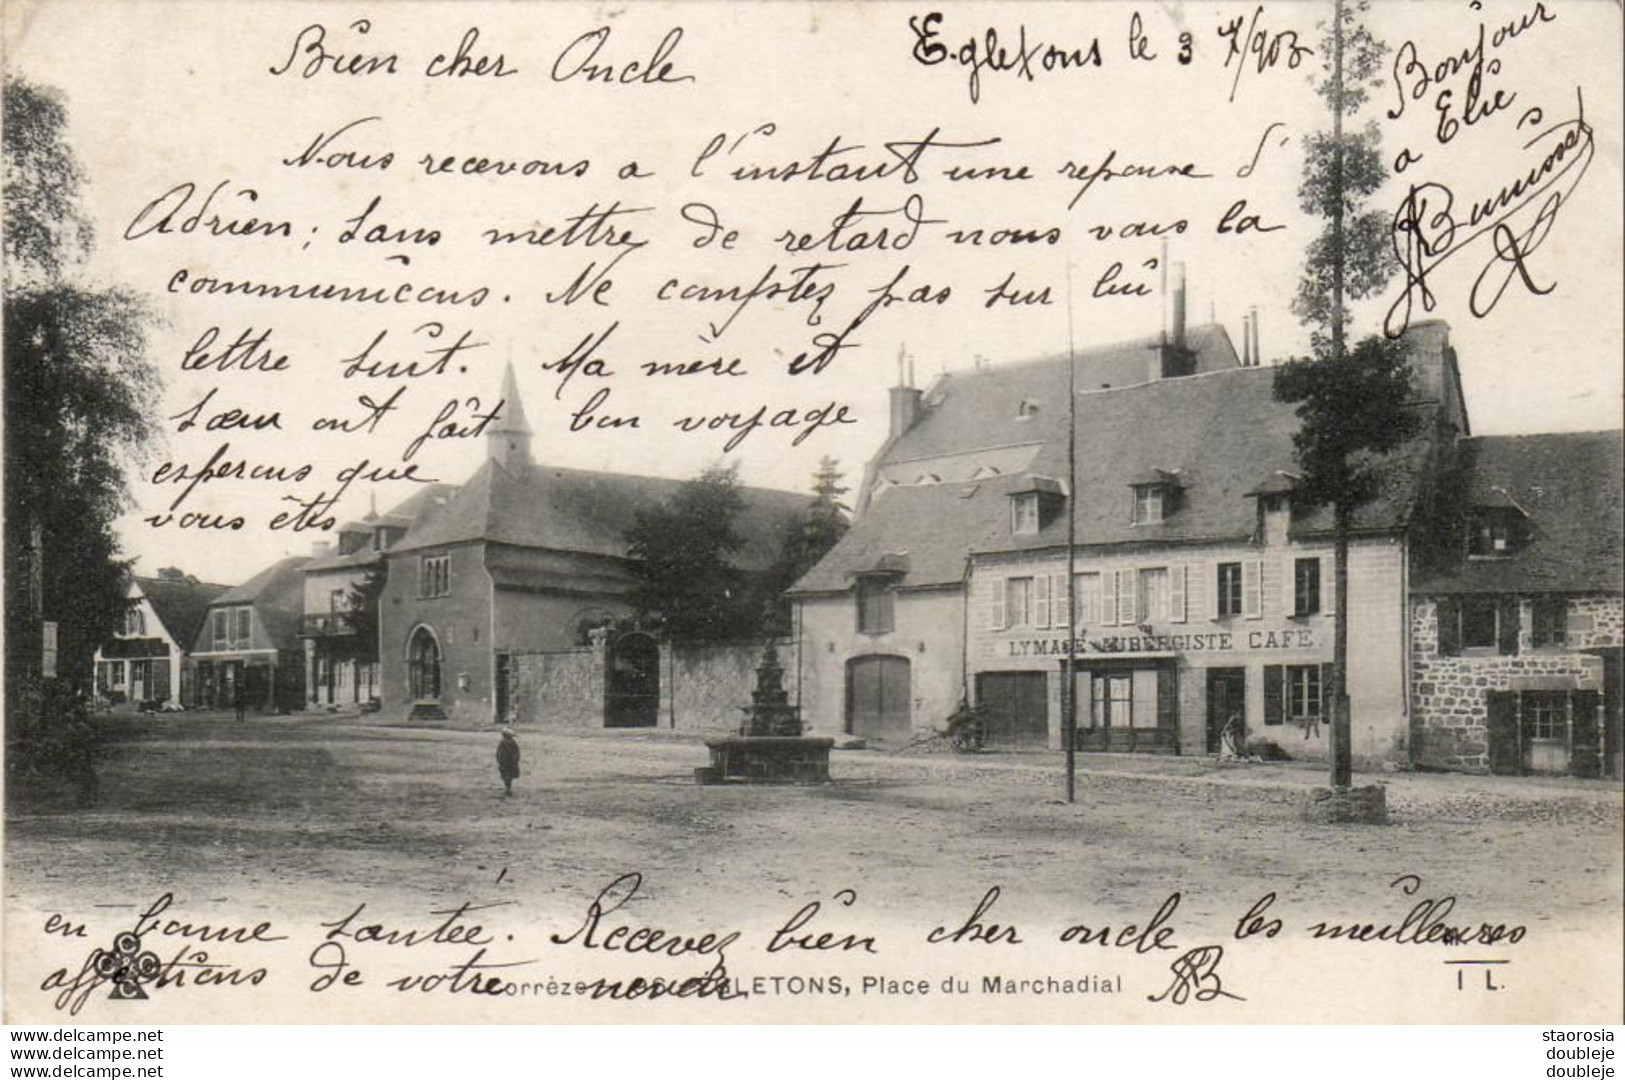 Bien cher Oncle
Egletons le 3 7/903
Bonjour
a Elie
Nous recevons a l'instant une reponse d'
Adrien; sans mettre de retard nous vous la
communicons. Ne comptez pas sur lui
lettre suit. Ma mère et
sœur ont fait bon voyage
esperons que
vous êtes
LYMAGE AUBERGISTE CAFE
en bonne santée. Recevez bien cher oncle les meilleures
affections de votre neveu
AB
Corrèze EGLETONS, Place du Marchadial
I L.
staorosia
doubleje
doubleje
www.delcampe.net
www.delcampe.net
www.delcampe.net